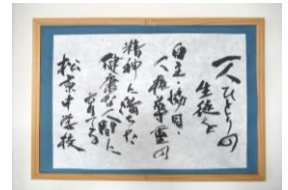 一人ひとりの
生徒を
自主・協同・
人権尊重の
精神に満ちた
健康な人間に
育てる
松京中学校